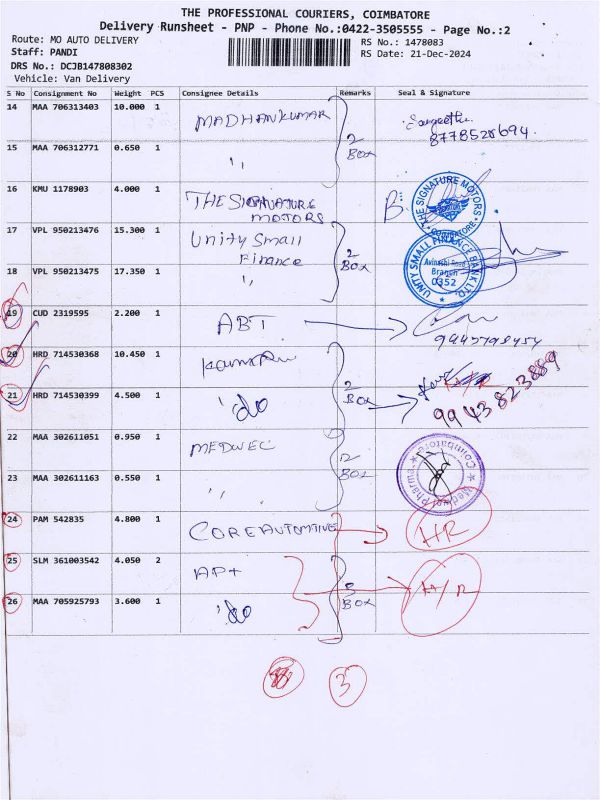 THE PROFESSIONAL COURIERS, COIMBATORE
Delivery Runsheet - PNP - Phone No.:0422-3505555 - Page No.:2
Route: MO AUTO DELIVERY
RS No.: 1478083
Staff: PANDI
RS Date: 21-Dec-2024
DRS No.: DCJB147808302
Vehicle: Van Delivery
S No Consignment No Weight PCS Consignee Details Remarks Seal & Signature
14 MAA 706313403 10.000 1 MADHANKUMAR 2 BOX Sangeetha
8778528694
15 MAA 706312771 0.650 1 ''
16 KMU 1178903 4.000 1 THE SIGNATURE MOTORS B THE SIGNATURE MOTORS COIMBATORE
17 VPL 950213476 15.300 1 Unity Small Finance 2 BOX UNITY SMALL FINANCE BANK LTD. Avinashi Road Branch 0352
18 VPL 950213475 17.350 1 ''
19 CUD 2319595 2.200 1 ABT
20 HRD 714530368 10.450 1 2 BOX
9943823889
21 HRD 714530399 4.500 1 'do
22 MAA 302611051 0.950 1 MEDWEC 2 BOX Pharma Coimbatore
23 MAA 302611163 0.550 1 ''
24 PAM 542835 4.800 1 CORE AUTOMOTIVE HR
25 SLM 361003542 4.050 2 AP+ 3 BOX H/R
26 MAA 705925793 3.600 1 'do
3